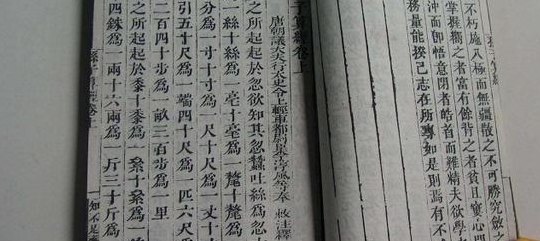 不朽施八極而無疆散之不可勝究斂之
掌握嚮之者富有餘背之者貧且窶心開
沖而即悟意閉者皓首而難精夫欲學
務量能揆己志在所專如是則焉有不
子算經卷上
唐朝議大夫行太史令上輕車都尉臣李淳風等奉 敕注釋
之所起起於忽欲知其忽蠶吐絲爲忽
一絲十絲爲一毫十毫爲一氂十氂爲
分爲一寸十寸爲一尺十尺爲一丈十
引五十尺爲一端四十尺爲一匹六尺
二百四十步爲一畝三百步爲一里
之所起起於黍十黍爲一絫十絫爲一
四銖爲一兩十六兩爲一斤三十斤爲
孫子算經卷上
知不足